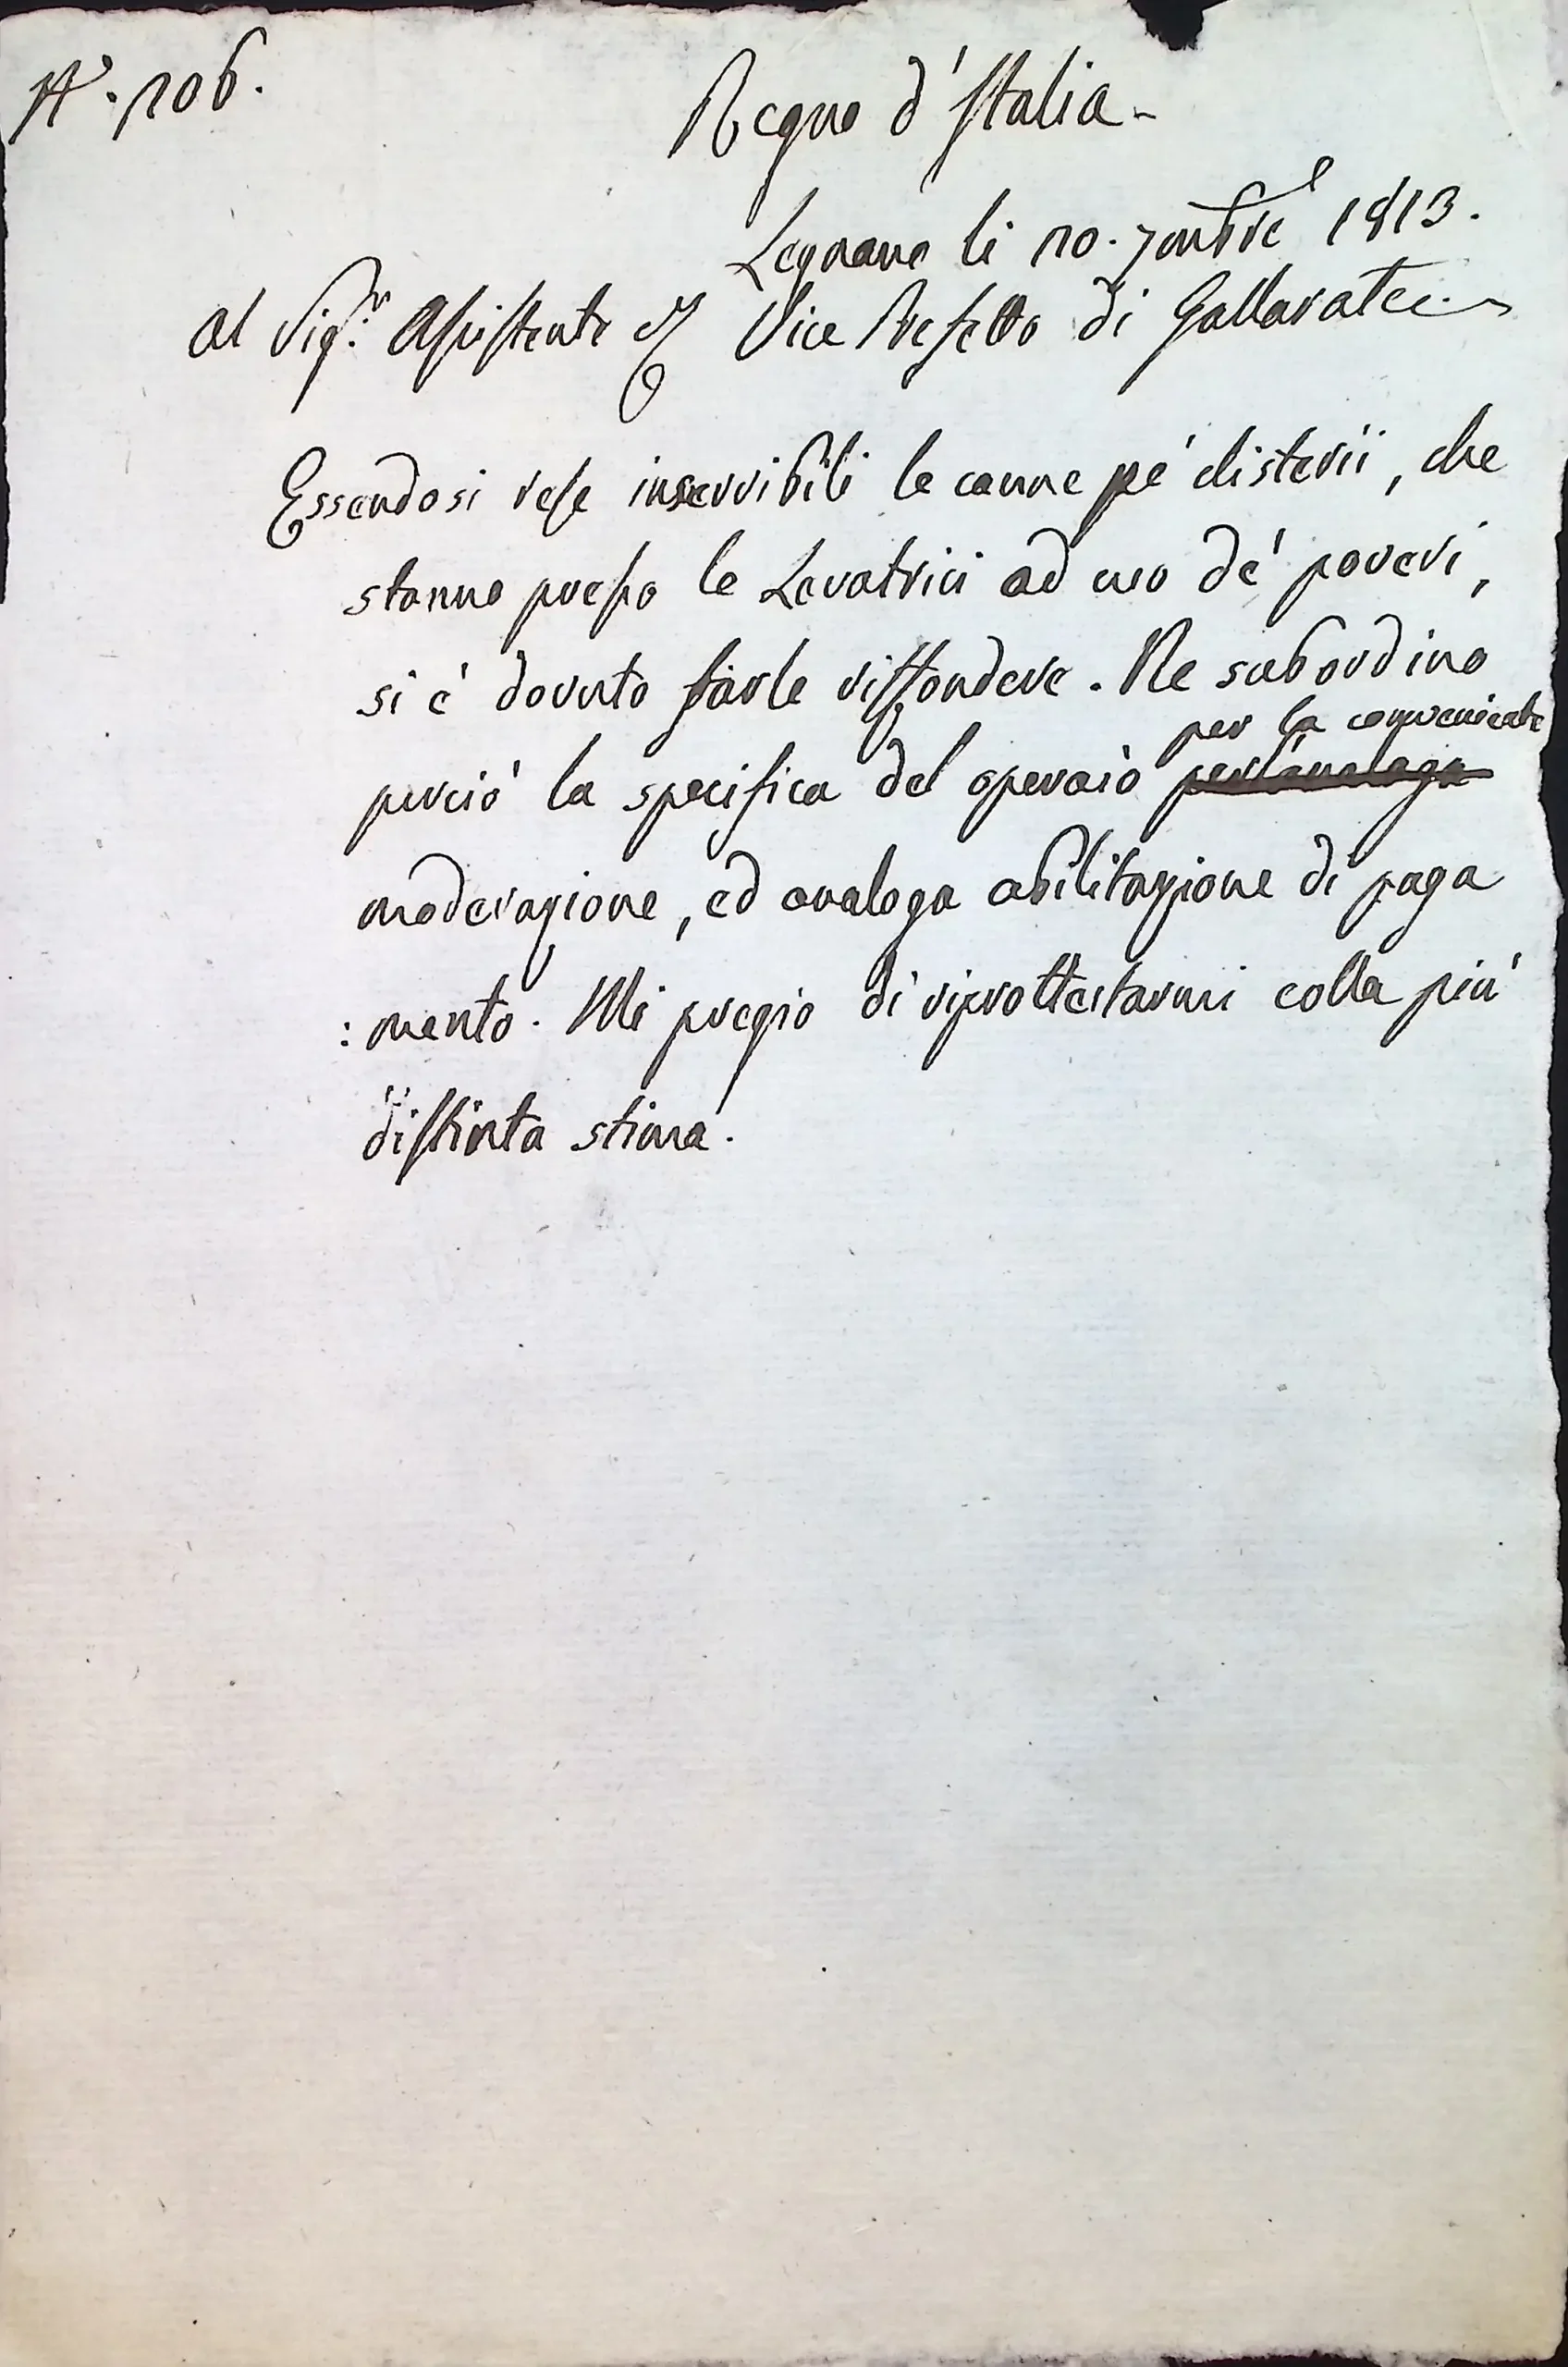 N.° 106.
Regno d'Italia -
Legnano li 10. 7mbre 1813.
Al Sig.r Assistente al Vice Prefetto di Gallarate
Essendosi rese inservibili le canne pe' clisterii, che
stanno presso le Levatrici ad uso de' poveri,
si è dovuto farle riffondere. Ne subordino
per la conveniente
perciò la specifica del operaio per l'analoga
moderazione, ed analoga abilitazione di paga
: mento. Mi pregio di riprottestarmi colla più
distinta stima.